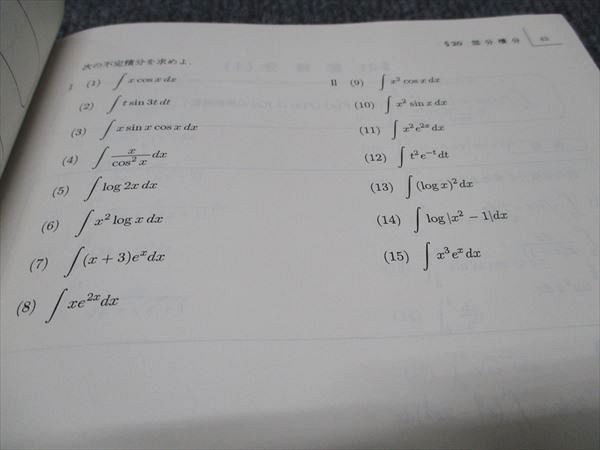 §20 部分積分 43
次の不定積分を求めよ.
I (1) ∫ x cos x dx
(2) ∫ t sin 3t dt
(3) ∫ x sin x cos x dx
(4) ∫ x/cos² x dx
(5) ∫ log 2x dx
(6) ∫ x² log x dx
(7) ∫ (x + 3)eˣdx
(8) ∫ xe²ˣdx
II (9) ∫ x² cos x dx
(10) ∫ x² sin x dx
(11) ∫ x²e²ˣdx
(12) ∫ t²e⁻ᵗdt
(13) ∫ (log x)² dx
(14) ∫ log |x² − 1|dx
(15) ∫ x³eˣdx